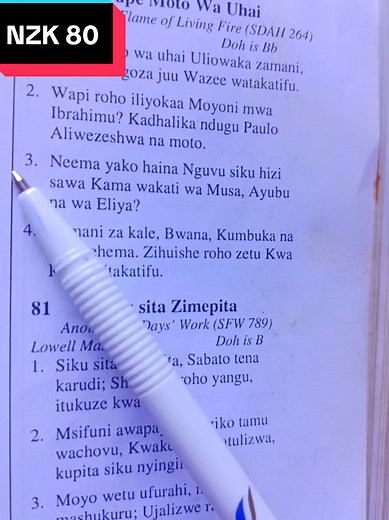 Moto Wa Uhai
NZK 80
Flame of Living Fire (SDAH 264)
Doh is Bb
wa uhai Uliowaka zamani,
juu Wazee watakatifu.
2. Wapi roho iliyokaa Moyoni mwa
Ibrahimu? Kadhalika ndugu Paulo
Aliwezeshwa na moto.
3. Neema yako haina Nguvu siku hizi
sawa Kama wakati wa Musa, Ayubu
na wa Eliya?
4. Bwana, Kumbuka na
Zihuishe roho zetu Kwa
81 sita Zimepita
Days' Work (SFW 789)
Lowell Doh is B
1. Siku Sabato tena
karudi; roho yangu,
itukuze
2. Msifuni tamu
wachovu,
kupita siku
3. Moyo wetu ufurahi,
mashukuru; Ujalizwe